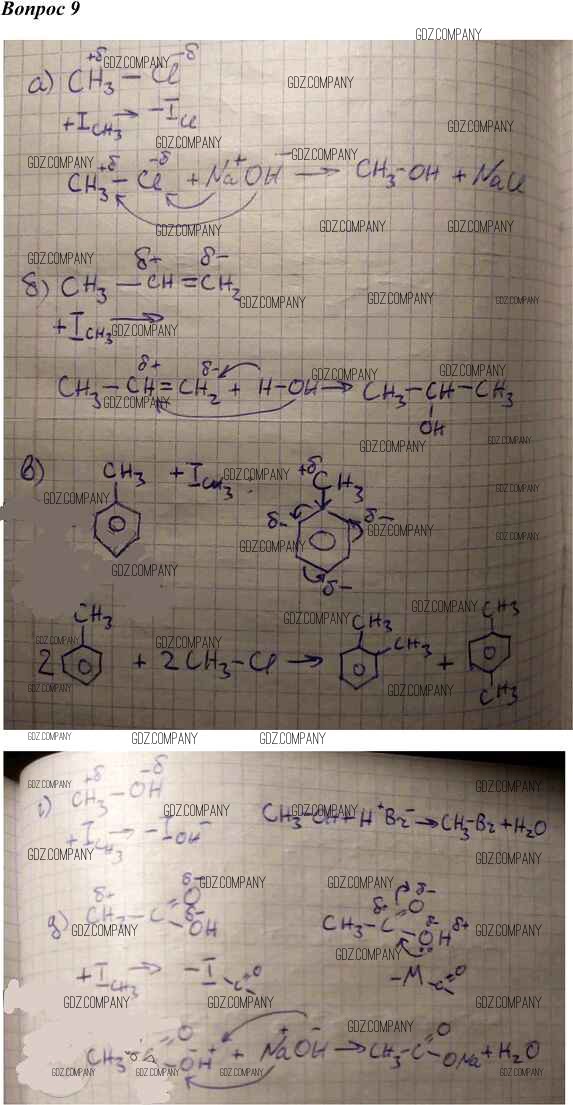 Вопрос 9
GDZ.COMPANY
+δ -δ
а) CH₃ – Cl
+I CH₃ → -I Cl
+δ -δ + -
CH₃ – Cl + NaOH → CH₃-OH + NaCl
δ+ δ-
б) CH₃ – CH = CH₂
+I CH₃ →
δ+ δ-
CH₃ – CH = CH₂ + H – OH → CH₃ – CH – CH₃
OH
в) CH₃ +I CH₃ +δ CH₃
δ- δ-
δ-
CH₃ CH₃ CH₃
2 + 2CH₃ – Cl → CH₃ +
CH₃
+δ -δ
г) CH₃ – OH
+I CH₃ → -I OH⁻ CH₃ – OH + H⁺Br⁻ → CH₃ – Br + H₂O
δ+ δ- δ+ δ-
д) CH₃ – C O OH δ- CH₃ – C O OH δ- δ+
+I CH₃ → -I C=O -M C=O
CH₃ – C O OH⁺ + Na⁺OH⁻ → CH₃ – C O ONa + H₂O